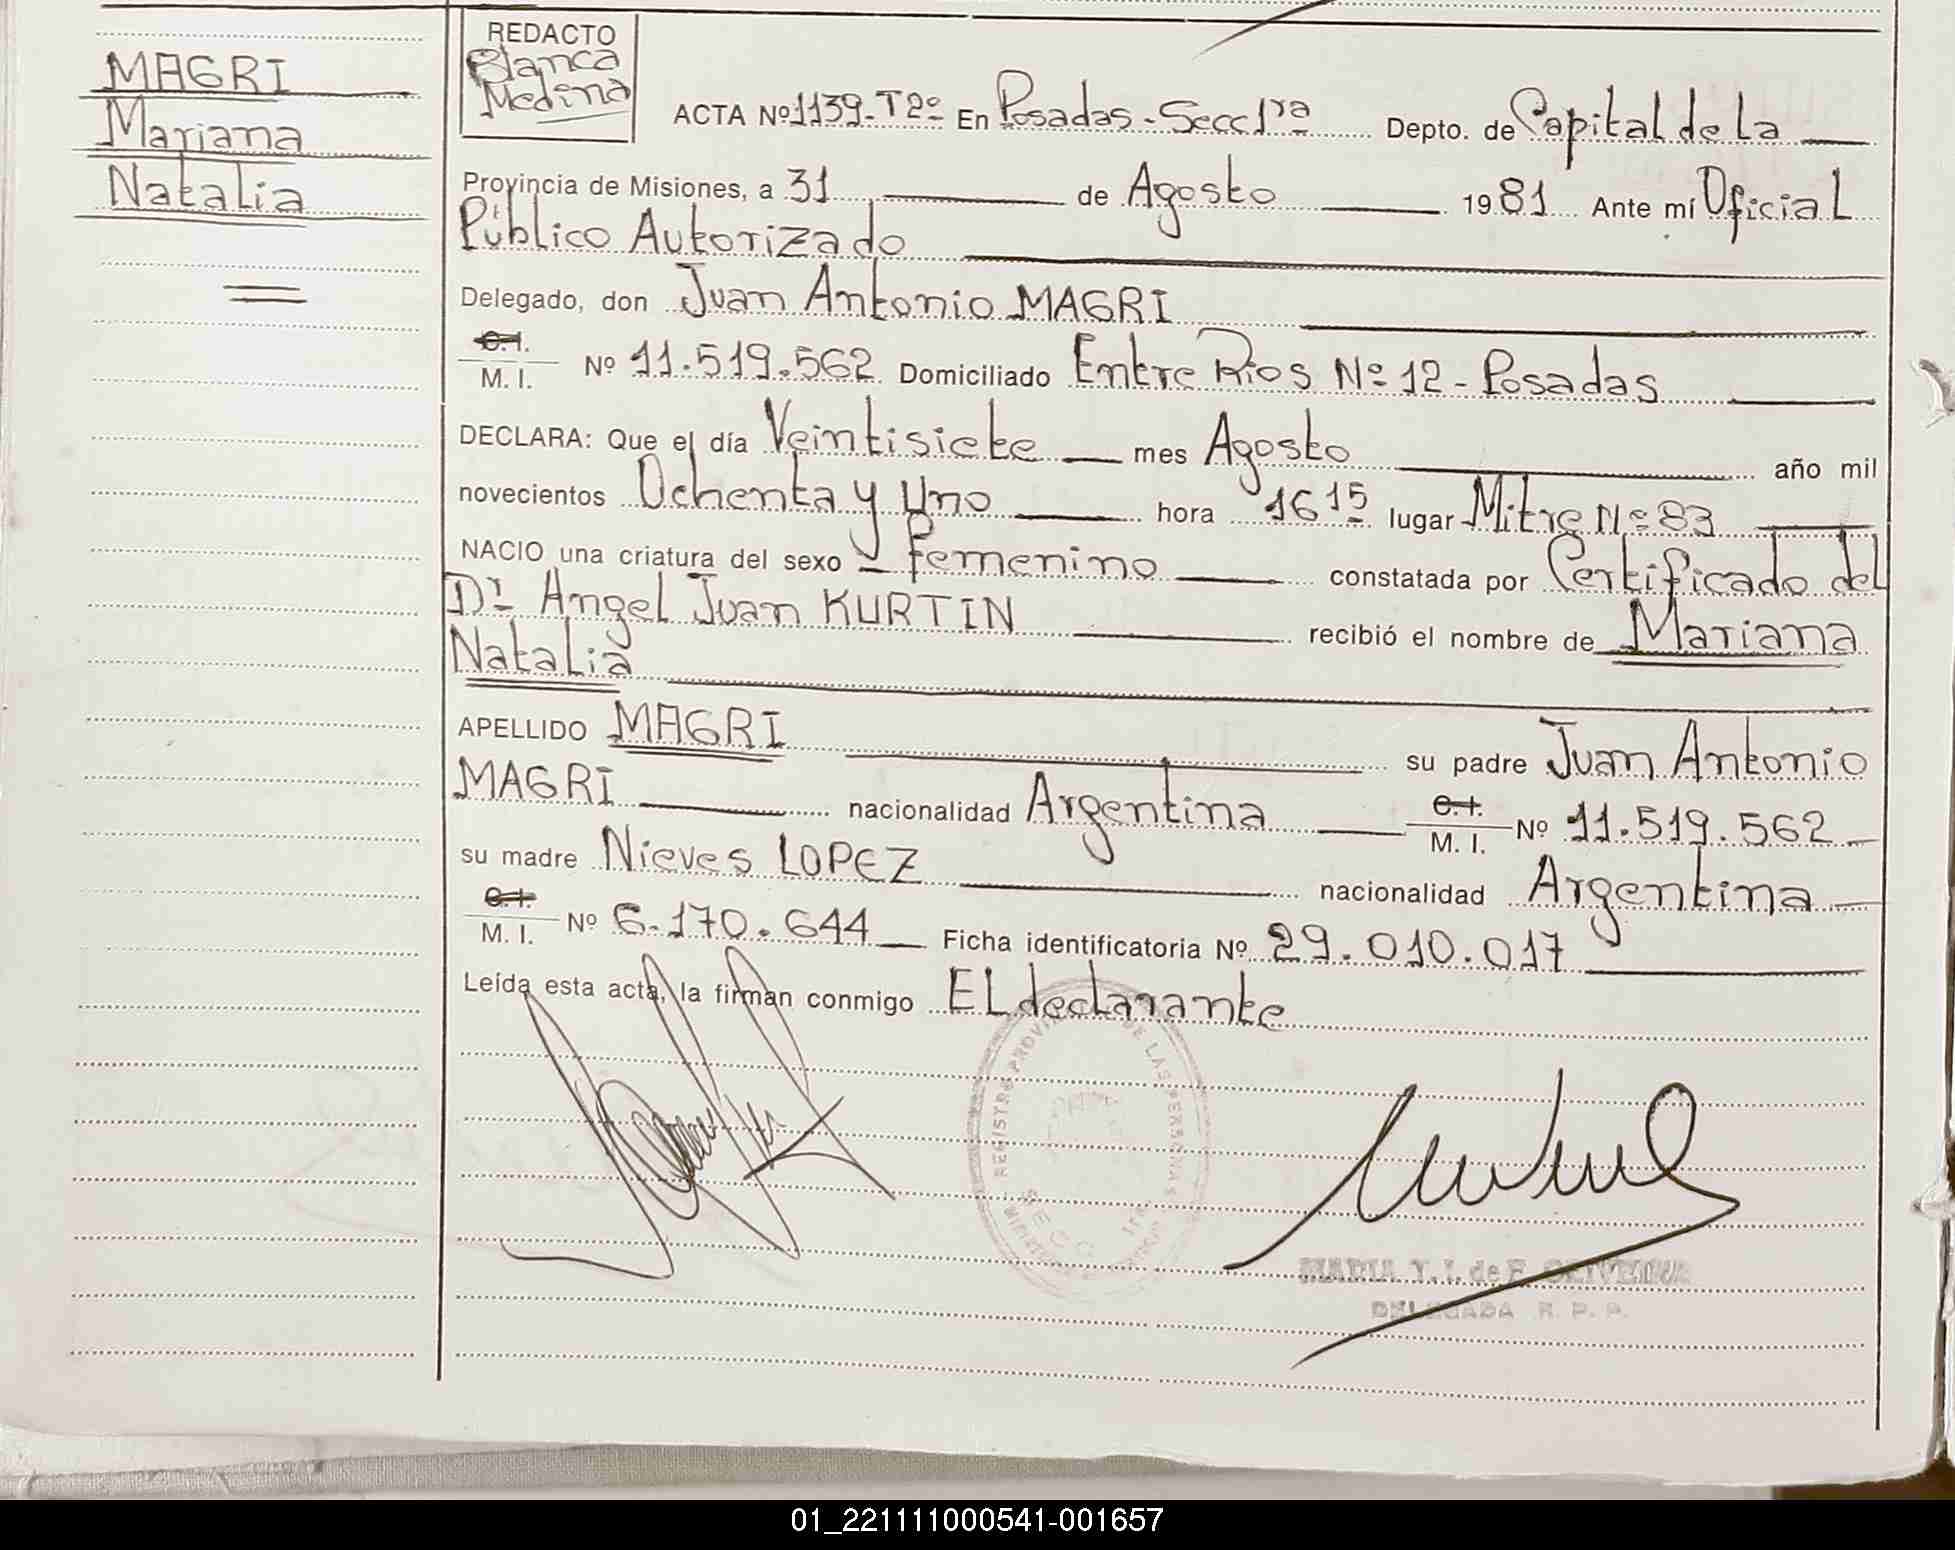 MAGRI
Mariana
Natalia
REDACTO
Blanca
Medina
ACTA Nº 1139-T2º En Posadas-Secc 1ra Depto. de Capital de la
Provincia de Misiones, a 31 de Agosto 1981 Ante mí Oficial
Público Autorizado
Delegado, don Juan Antonio MAGRI
C.I.
M. I. Nº 11.519.562 Domiciliado Entre Rios Nº 12 - Posadas
DECLARA: Que el día Veintisiete mes Agosto año mil
novecientos Ochenta y Uno hora 16 15 lugar Mitre Nº 83
NACIO una criatura del sexo Femenino constatada por Certificado del
Dr Angel Juan KURTIN recibió el nombre de Mariana
Natalia
APELLIDO MAGRI su padre Juan Antonio
MAGRI nacionalidad Argentina C.I. M. I. Nº 11.519.562
su madre Nieves LOPEZ nacionalidad Argentina
C.I.
M. I. Nº 6.170.644 Ficha identificatoria Nº 29.010.017
Leída esta acta, la firman conmigo EL declarante
REGISTRO PROVINCIAL DE LAS PERSONAS
SECC 1ra
MARIA Y. I. de F.
DELEGADA R. P. P.
01_221111000541-001657